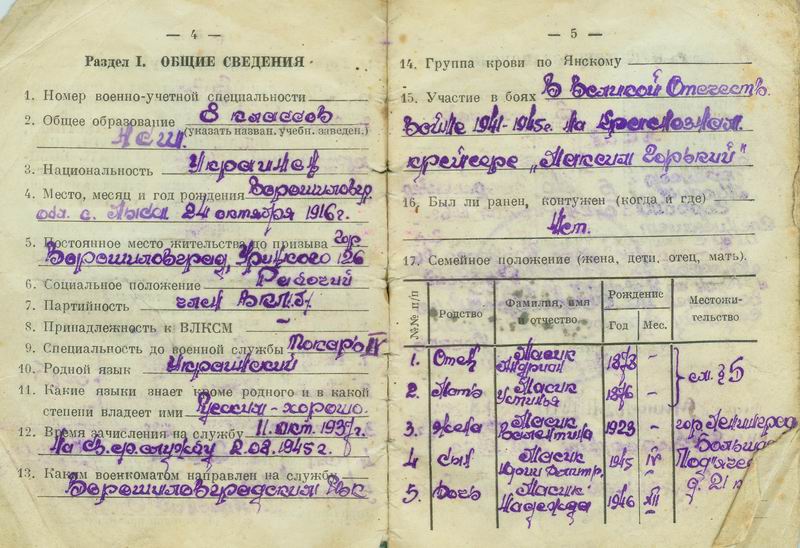 — 4 —
Раздел I. ОБЩИЕ СВЕДЕНИЯ
1. Номер военно-учетной специальности
2. Общее образование 8 классов
НСШ. (указать назван. учебн. заведен.)
3. Национальность Украинец
4. Место, месяц и год рождения Ворошиловгр.
обл. с. 24 октября 1916 г.
5. Постоянное место жительства до призыва гор
Ворошиловград, Урицкого 126
6. Социальное положение Рабочий
7. Партийность член ВКП/б/
8. Принадлежность к ВЛКСМ —
9. Специальность до военной службы Токарь IV
10. Родной язык Украинский
11. Какие языки знает кроме родного и в какой
степени владеет ими Русским - хорошо.
12. Время зачисления на службу 11. окт. 1937г.
На св.ср.службу 2.08.1945г.
13. Каким военкоматом направлен на службу
Ворошиловградским
— 5 —
14. Группа крови по Янскому
15. Участие в боях В Великой Отечеств.
Войне 1941-1945г. на Краснознам.
крейсере „Максим Горький"
16. Был ли ранен, контужен (когда и где)
Нет.
17. Семейное положение (жена, дети, отец, мать).
№№ п/п Родство Фамилия, имя и отчество Рождение Год Мес. Местожи-
тельство
1. Отец Пасик Андриан 1873 - см. § 5
2. Мать Пасик Устинья 1876 -
3. Жена Пасик Валентина 1923 - гор Ленинград
4 сын Пасик Юрий 1945 IV
5. Дочь Пасик Надежда 1946 XII д. 21